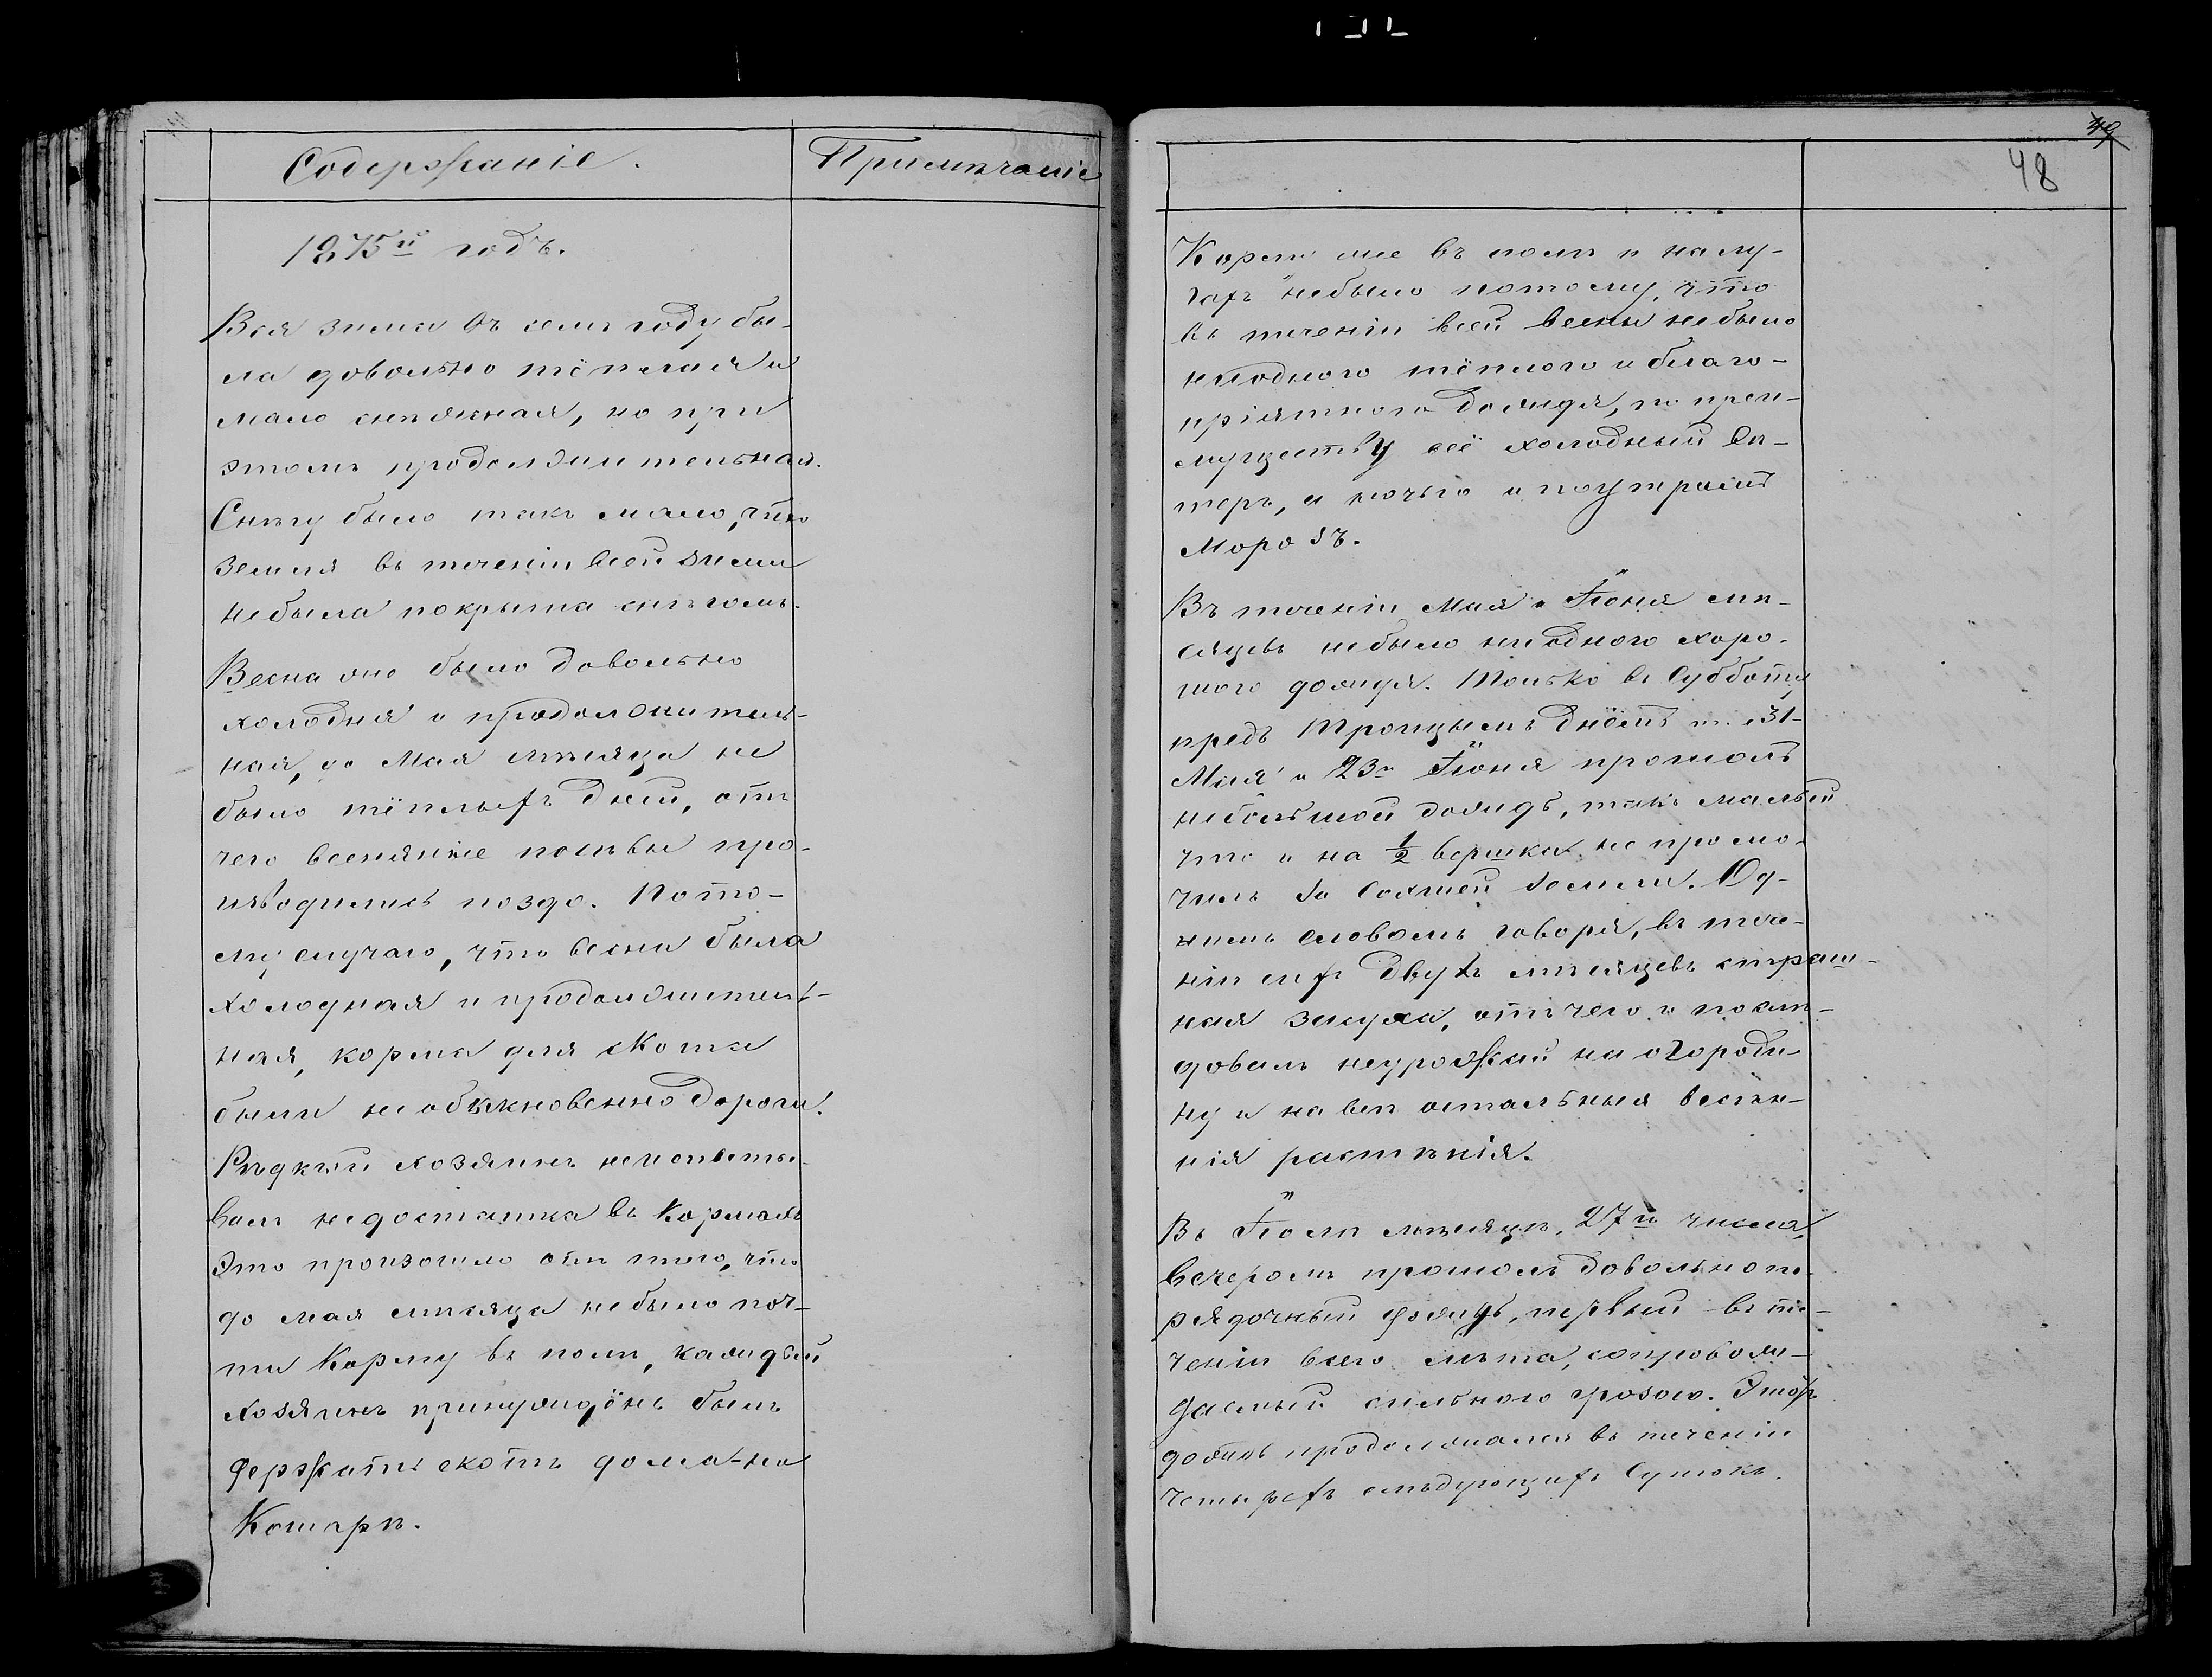 Содержаніе.
Примѣчаніе
1875й годъ.
Вся зима въ семъ году бы-
ла довольно тёплая и
мало снѣжная, но при
этомъ продолжительная.
Снѣгу было такъ мало, что
земля въ теченіи всей зимы
небыла покрыта снѣгомъ.
Весна оно было довольно
холодная и продолжитель-
ная, до Мая мѣсяца не
было тёплыхъ дней, отъ
чего весенніе посѣвы про-
изводились поздо. Пото-
му случаю, что весна была
холодная и продолжитель-
ная, корма для скота
были необыкновенно дороги.
Рѣдкій хозяинъ неиспыты-
валъ недостатка въ кормахъ
Это произошло отъ того, что
до мая мѣсяца небыло поч-
ти корму въ полѣ, каждый
хозяинъ принуждёнъ былъ
держать скотъ дома на
Кошарѣ.
49
48
Корму же въ полѣ и на лу-
гахъ небыло потому, что
въ теченіи всей весны небыло
ниодного тёплого и благо-
пріятного дождя, по преи-
муществу всё холодный вѣ-
теръ, а ночью и поутрамъ
морозъ.
Въ теченіи Мая и Іюня мѣ-
сяцевъ небыло ниодного хоро-
шого дождя. Только въ Субботу
предъ Троицымъ днёмъ т. е 31-
Мая и 23го Іюня прошолъ
небольшой дождь, такъ малый
что и на ½ вершка не промо-
чилъ землѣ. Од-
нимъ словомъ говоря, въ тече-
ніи сихъ двухъ мѣсяцевъ страш-
ная засуха, отъ чего и послѣ-
довалъ неурожай на огороди-
ну и на всѣ остальныя весен-
нія растѣнія.
Въ Іюлѣ мѣсяцѣ, 27го числа,
вечеромъ прошолъ довольно по-
рядочный дождь, первый въ те-
ченіи всего лѣта, сопровож-
даемый сильною грозою. Этотъ
дождь продолжался въ теченіи
четырехъ слѣдующихъ сутокъ.